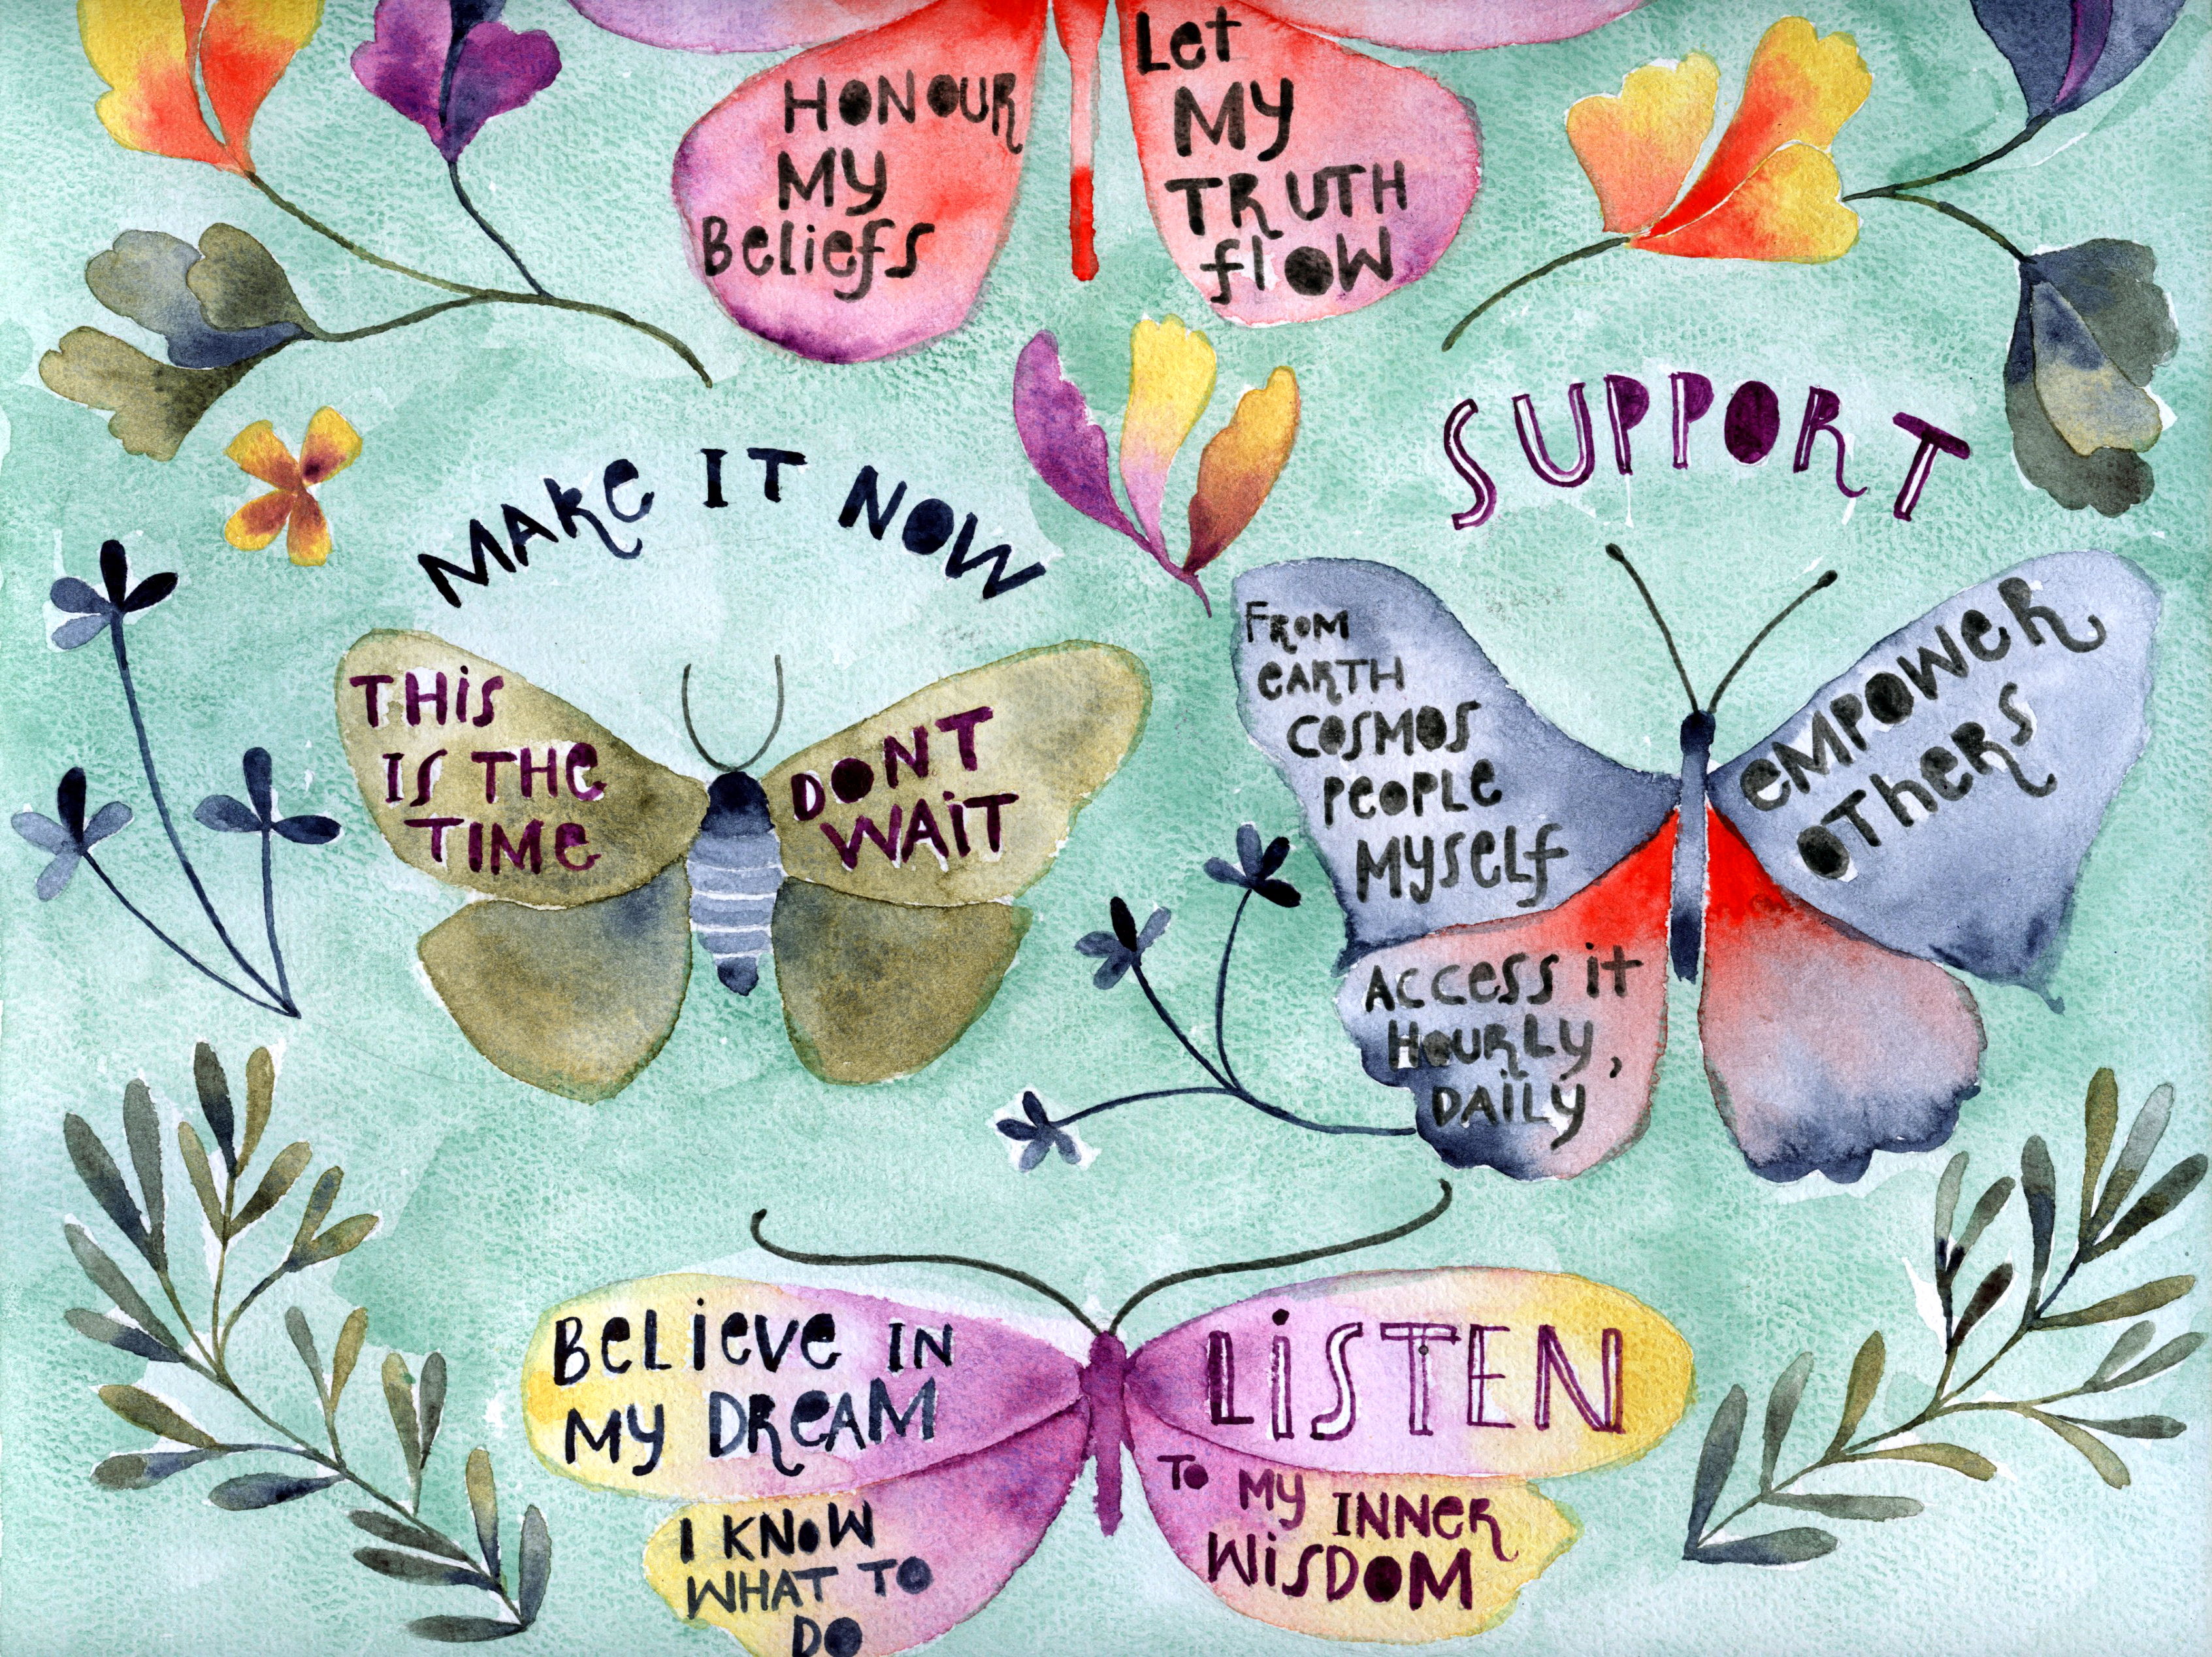 HONOUR
MY
Beliefs
Let
MY
TRUTH
flow
MAKe IT NOW
THis
IS THe
TIMe
DONT
WAiT
SUPPORT
FROM
eARTH
COSMOS
PEOPLE
MYSelf
eMPOWeR
OTheRS
Access it
HOURLY,
DAiLY
BeLieVe IN
MY DReAM
I KNOW
WHAT TO
DO
LiSTEN
To MY INNeR
WiSDOM